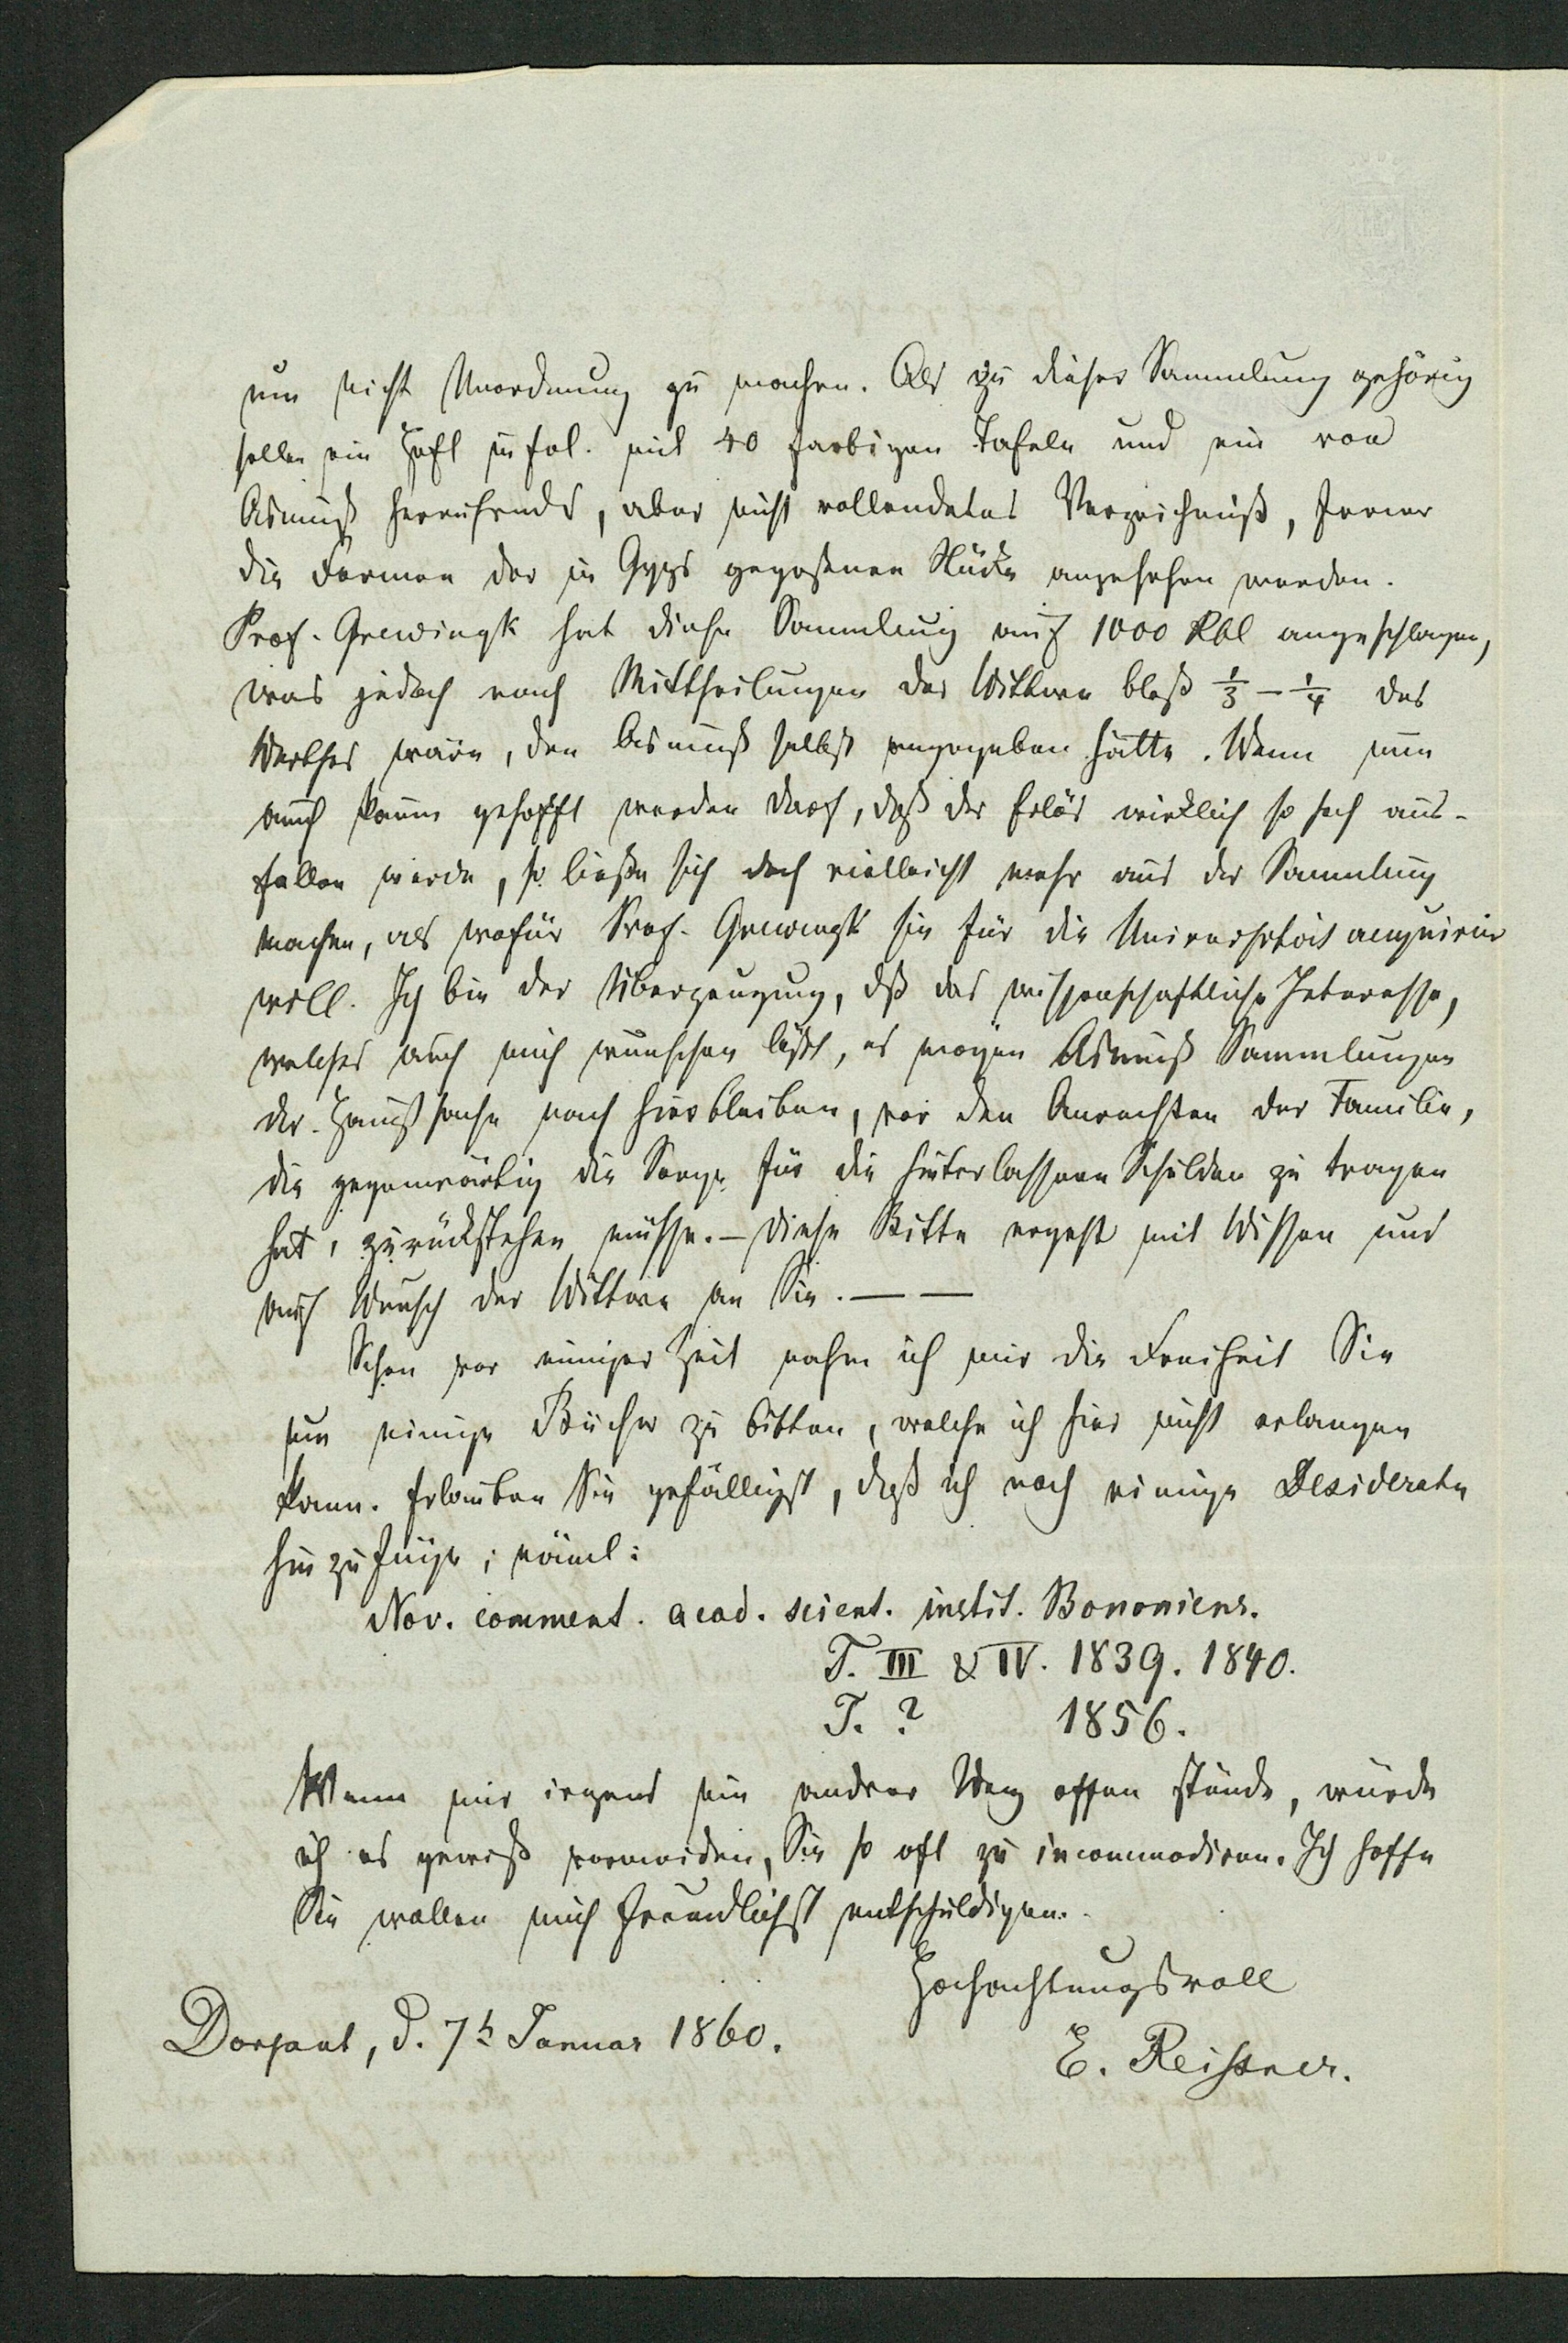 um nicht Unordnung zu machen. Als zu dieser Sammlung gehörig
sollen ein Heft in fol. mit 40 farbigen Tafeln und ein von
Asmuß herrührendes, aber nicht vollendetes Verzeichniß, ferner
die Formen der in Gyps gegoßenen Stücke angesehen werden.
Prof. Grewingk hat diese Sammlung auf 1000 Rbl angeschlagen,
was jedoch nach Mittheilungen der Wittwe bloß 1/3 – 1/4 des
Werthes wäre, den Asmuß selbst angegeben hätte. Wenn nun
auch kaum gehofft werden darf, daß der Erlös wirklich so hoch aus-
fallen werde, so ließe sich doch vielleicht mehr aus der Sammlung
machen, als wofür Prof. Grewingk sie für die Universität acquirir
will. Ich bin der Überzeugung, dß das wissenschaftliche Interesse,
welches auch mich wünschen läßt, es mögen Asmuß Sammlungen
der Hauptsache nach hierbleiben, vor den Anrechten der Familie,
die gegenwärtig die Sorge für die hinterlassenen Schulden zu tragen
hat, zurückstehen müsse. – Diese Bitte ergeht mit Wissen und
auf Wunsch der Wittwe an Sie. — —
Schon vor einiger Zeit nahm ich mir die Freiheit Sie
um einige Bücher zu bitten, welche ich hier nicht erlangen
kann. Erlauben Sie gefälligst, daß ich noch einige Desiderate
hinzufüge; näml:
Nov. comment. acad. scient. instit. Bononiens.
T. III & IV. 1839. 1840.
T. ? 1856.
Wenn mir irgend ein andrer Weg offen stände, würde
ich es gewiß vermeiden, Sie so oft zu incommodiren. Ich hoffe
Sie wollen mich freundlichst entschuldigen.
Hochachtungsvoll
Dorpat, d. 7t Januar 1860.
E. Reissner.